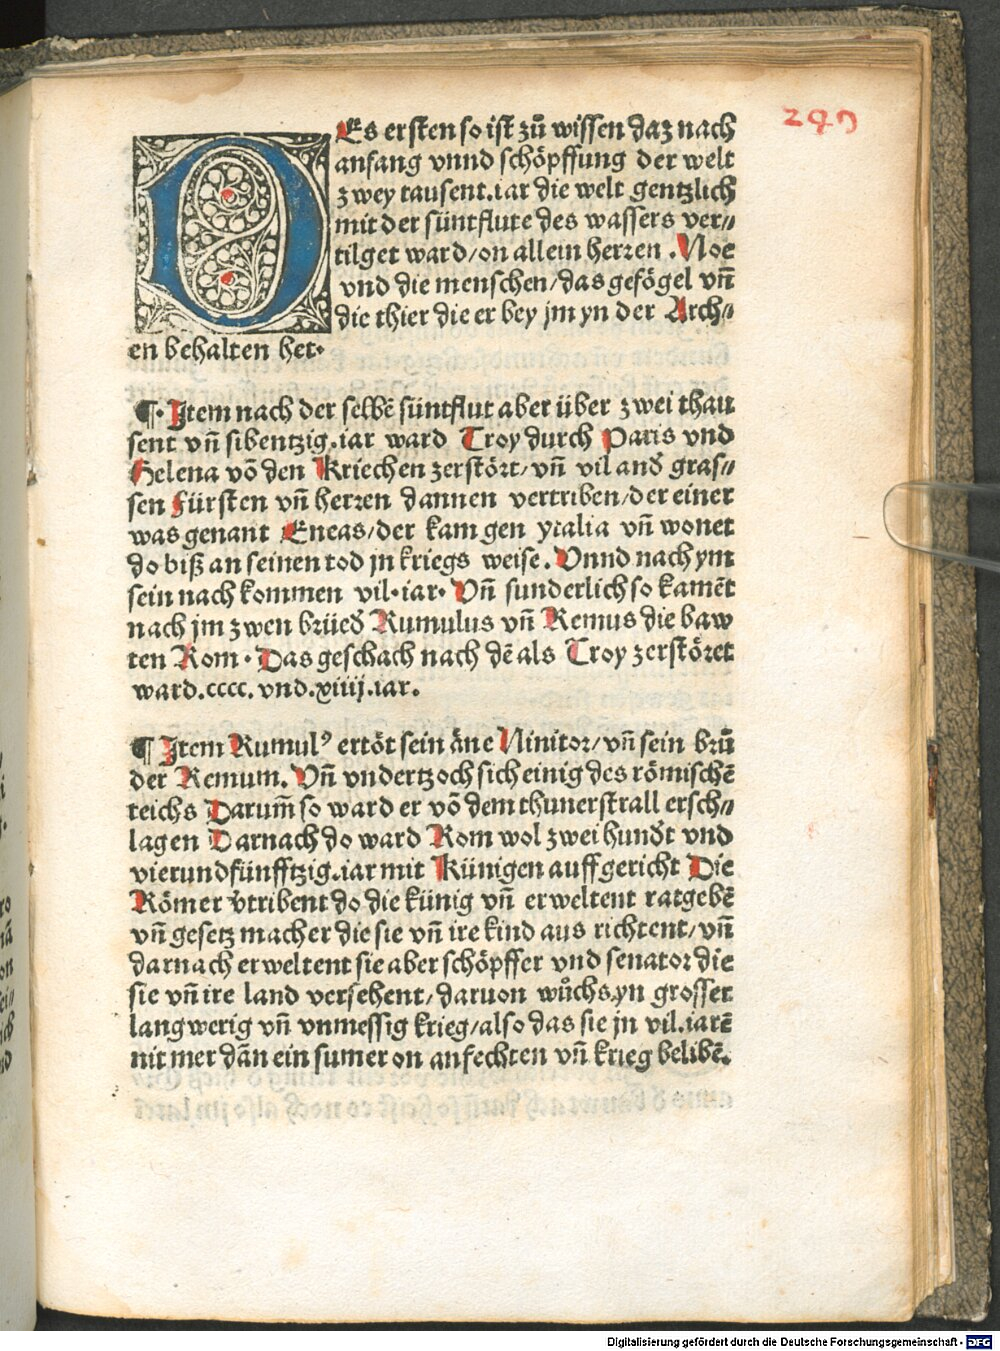 249
DEs ersten so ist zů wissen daz nach
anfang vnnd schöpffung der welt
zwey tausent.iar die welt gentzlich
mit der süntflute des wassers ver//
tilget ward/on allein herren .Noe
vnd die menschen/das gefögel vñ
die thier die er bey jm yn der Arch//
en behalten het.
¶.Jtem nach der selbē süntflut aber über zwei thau
sent vñ sibentzig.iar ward Troy durch Paris vnd
Helena vō den Kriechen zerstört/vñ vil and̄ gras//
sen fürsten vñ herren dannen vertriben/der einer
was genant Eneas/der kam gen ytalia vñ wonet
do biß an seinen tod jn kriegs weise. Vnnd nach ym
sein nach kommen vil.iar. Vñ sunderlich so kamēt
nach jm zwen brüed̄ Rumulus vñ Remus die baw
ten Rom. Das geschach nach dē als Troy zerstöret
ward.cccc. vnd.xiiij.iar.
¶ Jtem Rumulꝰ ertöt sein āne Ninitor/vñ sein brů
der Remum. Vñ vndertzoch sich einig des römischē
reichs Darum̄ so ward er vō dem thunerstrall ersch//
lagen Darnach do ward Rom wol zwei hund̄t vnd
vierundfünfftzig.iar mit Künigen auffgericht Die
Römer v̄tribent do die künig vñ erweltent ratgebē
vñ gesetz macher die sie vñ ire kind aus richtent/vñ
darnach erweltent sie aber schöpffer vnd senator die
sie vñ ire land versehent/daruon wůchs.yn grosser
langwerig vñ vnmessig krieg/also das sie jn vil.iarē
nit mer dān ein sumer on anfechten vñ krieg belibē.
Digitalisierung gefördert durch die Deutsche Forschungsgemeinschaft - DFG